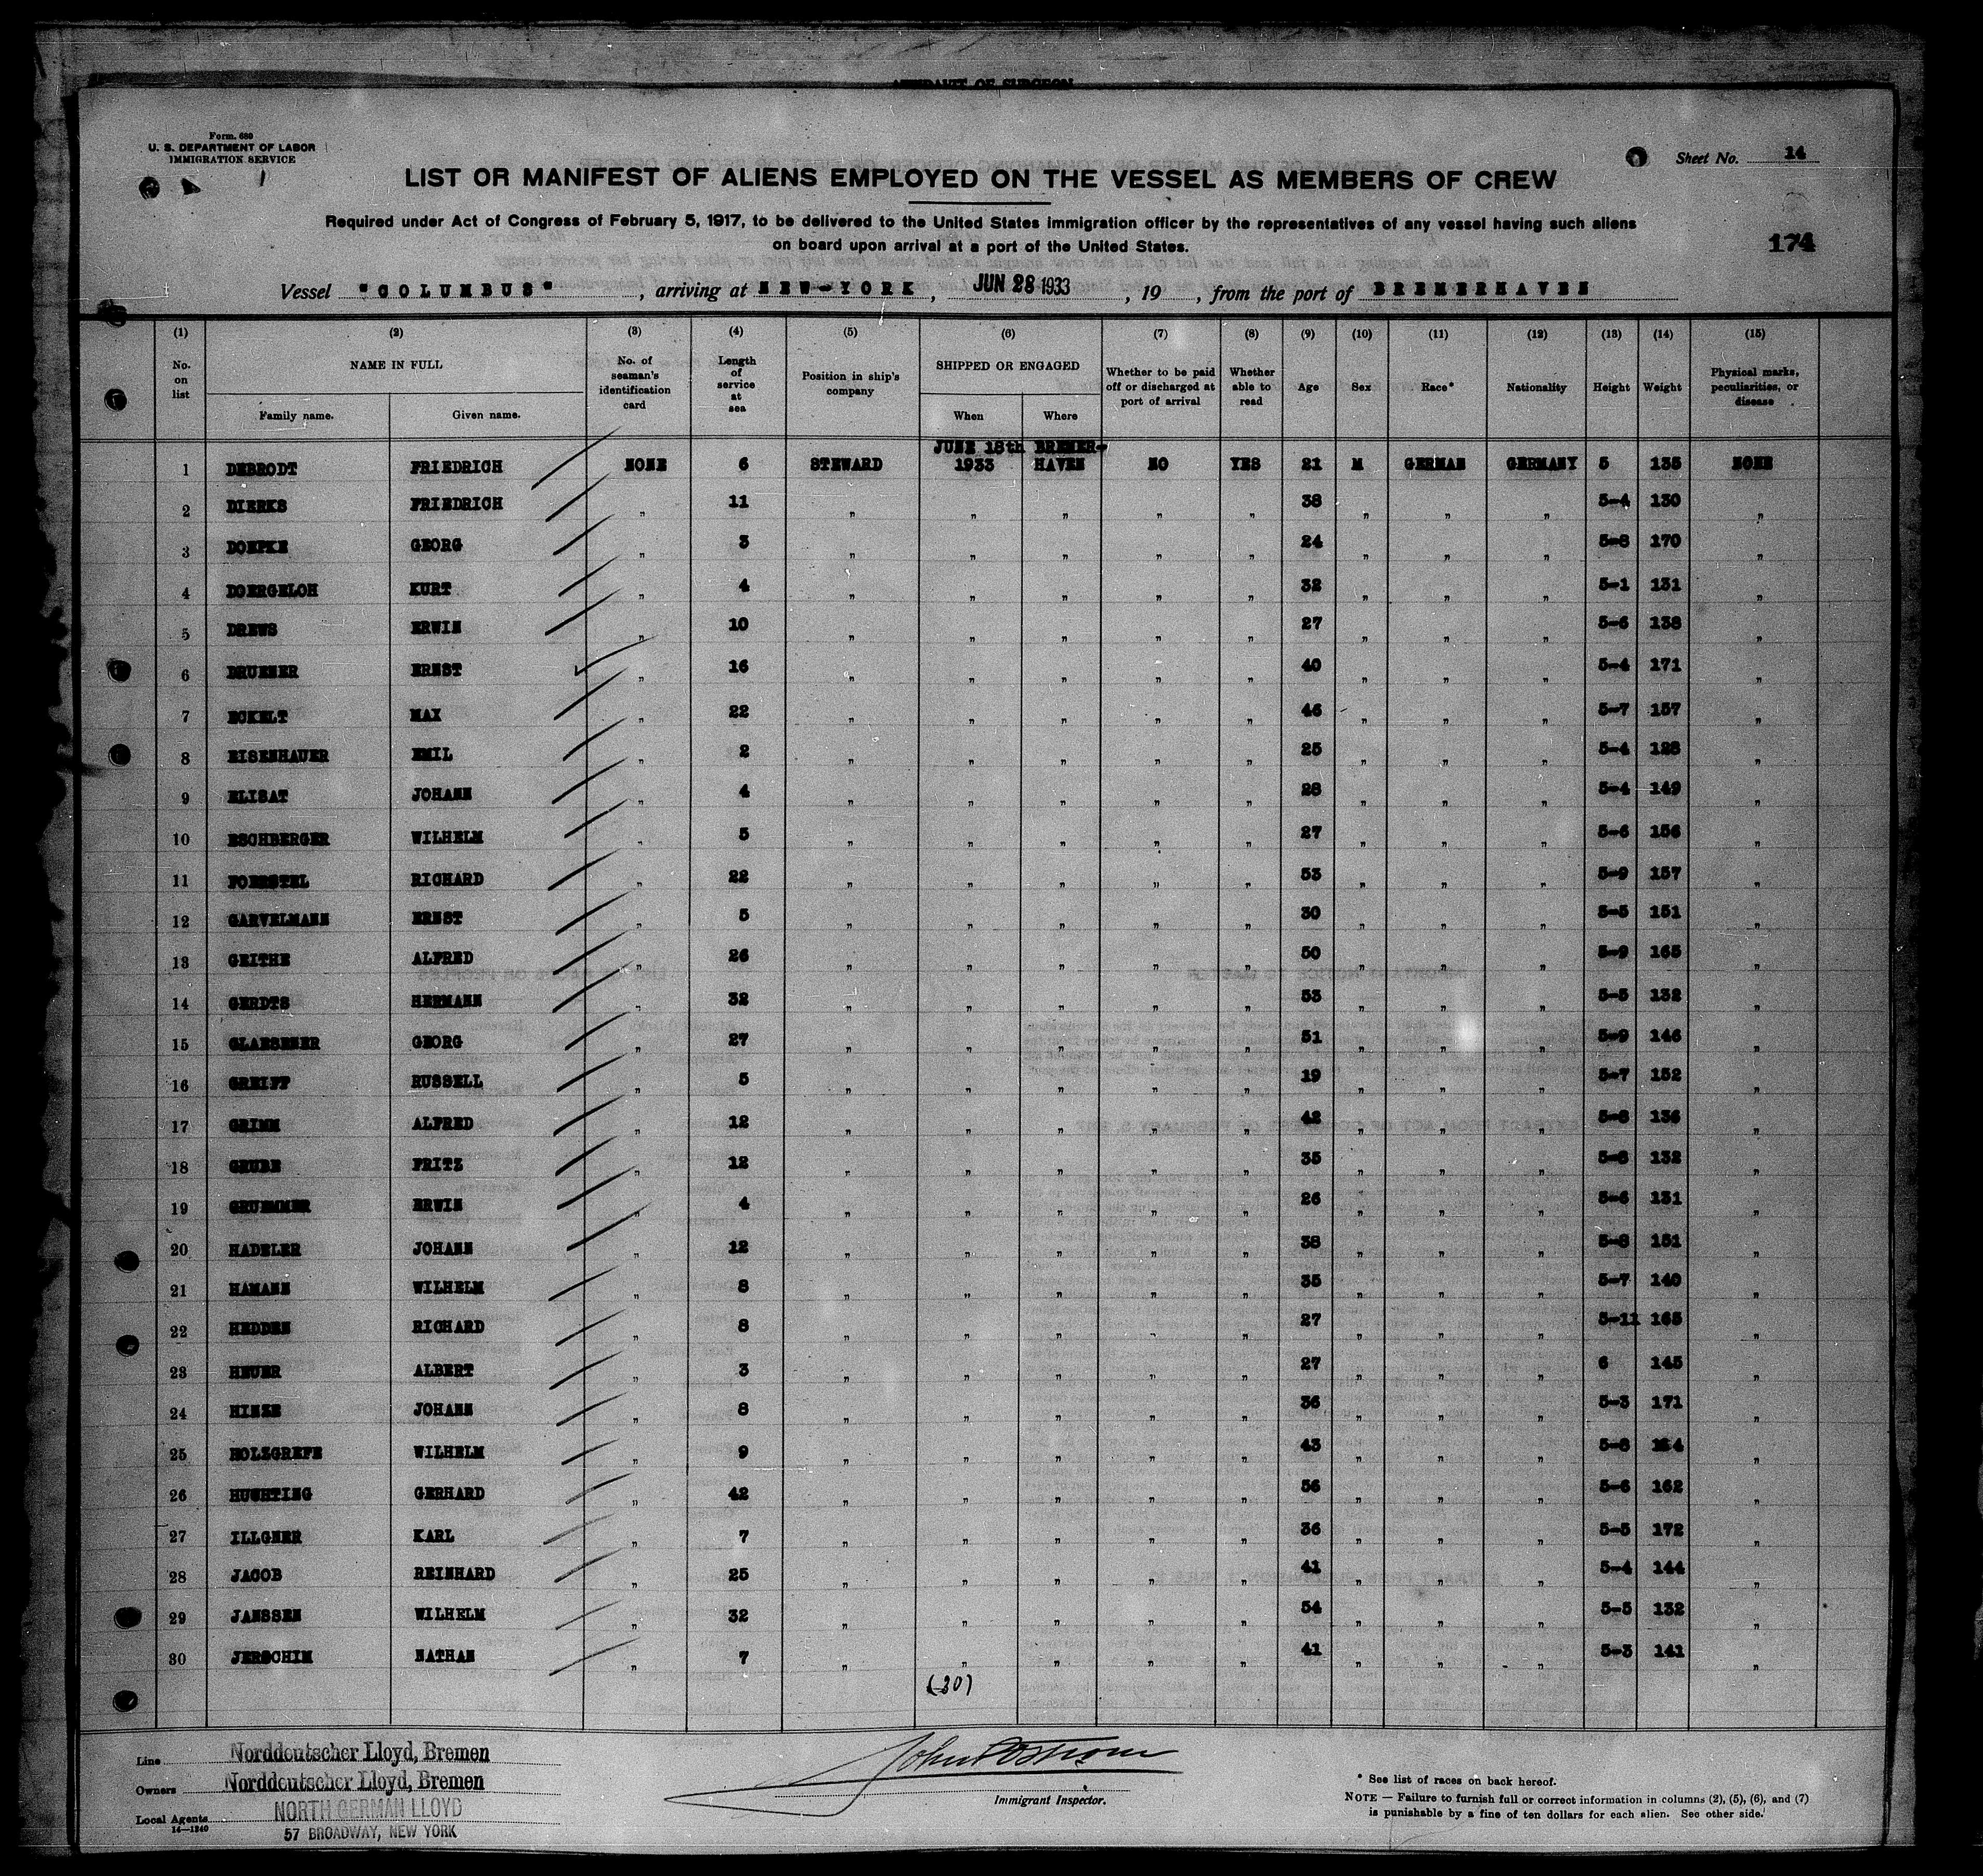 AFFIDAVIT OF SURGEON
Form. 680
U. S. DEPARTMENT OF LABOR
IMMIGRATION SERVICE
Sheet No. 14
LIST OR MANIFEST OF ALIENS EMPLOYED ON THE VESSEL AS MEMBERS OF CREW
Required under Act of Congress of February 5, 1917, to be delivered to the United States immigration officer by the representatives of any vessel having such aliens
on board upon arrival at a port of the United States.
174
Vessel "COLUMBUS", arriving at NEW-YORK, JUN 28 1933, 19 , from the port of BREMERHAVEN
(1) (2) (3) (4) (5) (6) (7) (8) (9) (10) (11) (12) (13) (14) (15)
No. on list NAME IN FULL Family name. Given name. No. of seaman's identification card Length of service at sea Position in ship's company SHIPPED OR ENGAGED When Where Whether to be paid off or discharged at port of arrival Whether able to read Age Sex Race* Nationality Height Weight Physical marks, peculiarities, or disease
JUNE 18th BREMER-
1 DEBRODT FRIEDRICH NONE 6 STEWARD 1933 HAVEN NO YES 21 M GERMAN GERMANY 5 135 NONE
2 DIERKS FRIEDRICH " 11 " " " " " 38 " " " 5-4 130 "
3 DOEPKE GEORG " 3 " " " " " 24 " " " 5-8 170 "
4 DOERGELOH KURT " 4 " " " " " 32 " " " 5-1 131 "
5 DREWS ERWIN " 10 " " " " " 27 " " " 5-6 138 "
6 DRUENER ERNST " 16 " " " " " 40 " " " 5-4 171 "
7 ECKELT MAX " 22 " " " " " 46 " " " 5-7 157 "
8 EISENHAUER EMIL " 2 " " " " " 25 " " " 5-4 128 "
9 ELISAT JOHANN " 4 " " " " " 28 " " " 5-4 149 "
10 ESCHBERGER WILHELM " 5 " " " " " 27 " " " 5-6 156 "
11 FOERSTEL RICHARD " 22 " " " " " 53 " " " 5-9 157 "
12 GARVELMANN ERNST " 5 " " " " " 30 " " " 5-5 151 "
13 GEITHE ALFRED " 26 " " " " " 50 " " " 5-9 165 "
14 GERDTS HERMANN " 32 " " " " " 53 " " " 5-5 132 "
15 GLAESENER GEORG " 27 " " " " " 51 " " " 5-9 146 "
16 GREIFF RUSSELL " 5 " " " " " 19 " " " 5-7 152 "
17 GRIMM ALFRED " 12 " " " " " 42 " " " 5-8 136 "
18 GRUBE FRITZ " 12 " " " " " 35 " " " 5-8 132 "
19 GRUEMMER ERWIN " 4 " " " " " 26 " " " 5-6 131 "
20 HADELER JOHANN " 12 " " " " " 38 " " " 5-8 151 "
21 HAMANN WILHELM " 8 " " " " " 35 " " " 5-7 140 "
22 HEDDEN RICHARD " 8 " " " " " 27 " " " 5-11 165 "
23 HEUER ALBERT " 3 " " " " " 27 " " " 6 145 "
24 HINZE JOHANN " 8 " " " " " 36 " " " 5-3 171 "
25 HOLZGREFE WILHELM " 9 " " " " " 43 " " " 5-8 "
26 HUCHTING GERHARD " 42 " " " " " 56 " " " 5-6 162 "
27 ILLGNER KARL " 7 " " " " " 36 " " " 5-5 172 "
28 JACOB REINHARD " 25 " " " " " 41 " " " 5-4 144 "
29 JANSSEN WILHELM " 32 " " " " " 54 " " " 5-5 132 "
30 JERSCHIM NATHAN " 7 " " " " " 41 " " " 5-3 141 "
(30)
Line Norddeutscher Lloyd, Bremen
Owners Norddeutscher Lloyd, Bremen
Local Agents NORTH GERMAN LLOYD
14-1240
57 BROADWAY, NEW YORK
Immigrant Inspector.
* See list of races on back hereof.
NOTE — Failure to furnish full or correct information in columns (2), (5), (6), and (7)
is punishable by a fine of ten dollars for each alien. See other side.